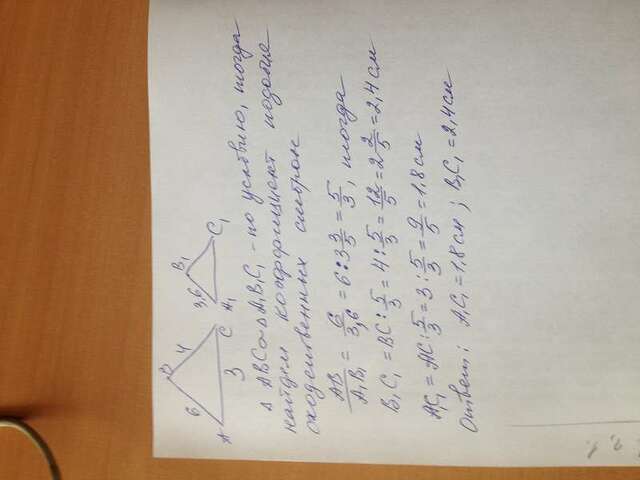 B 4 6 A 3 C
B₁ 3,6 A₁ C₁
Δ ABC ∞ Δ A₁B₁C₁ - по условию, тогда
найдем коэффициент подобия
сходственных сторон
AB/A₁B₁ = 6/3,6 = 6:3 3/5 = 5/3, тогда
B₁C₁ = BC : 5/3 = 4 : 5/3 = 12/5 = 2 2/5 = 2,4 см
A₁C₁ = AC : 5/3 = 3 : 5/3 = 9/5 = 1,8 см
Ответ: A₁C₁ = 1,8 см; B₁C₁ = 2,4 см